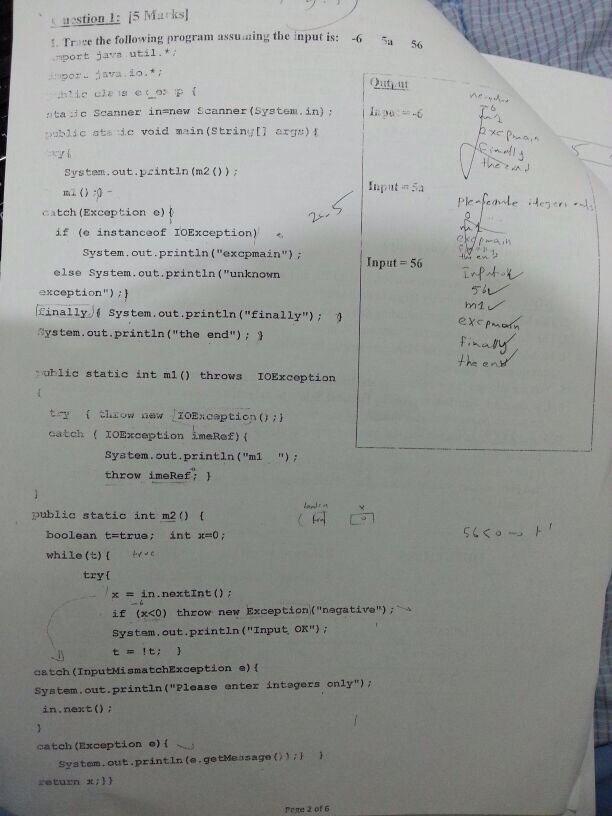 Question 1: [5 Marks]
1. Trace the following program assuming the input is: -6 5a 56
import java.util.*;
import java.io.*;
public class
static Scanner in=new Scanner(System.in);
public static void main(String[] args){
try{
System.out.println(m2());
m1();}
catch(Exception e){
if (e instanceof IOException)
System.out.println("excpmain");
else System.out.println("unknown
exception");}
finally{ System.out.println("finally"); }
System.out.println("the end"); }
public static int m1() throws IOException
{
try { throw new IOException();}
catch ( IOException imeRef){
System.out.println("m1 ");
throw imeRef; }
}
public static int m2() {
boolean t=true; int x=0;
while(t){ true
try{
x = in.nextInt();
-6
if (x<0) throw new Exception("negative");
System.out.println("Input OK");
t = !t; }
catch(InputMismatchException e){
System.out.println("Please enter integers only");
in.next();
}
catch(Exception e){
System.out.println(e.getMessage());} }
return x;}}
Output
Input = -6
negative
-6
m1
excpmain
finally
the end
Input = 5a
integers only
0
m1
excpmain
the end
Input = 56
Input ok
56
m1
excpmain
finally
the end
2.5
x
0
56<0
Page 2 of 6